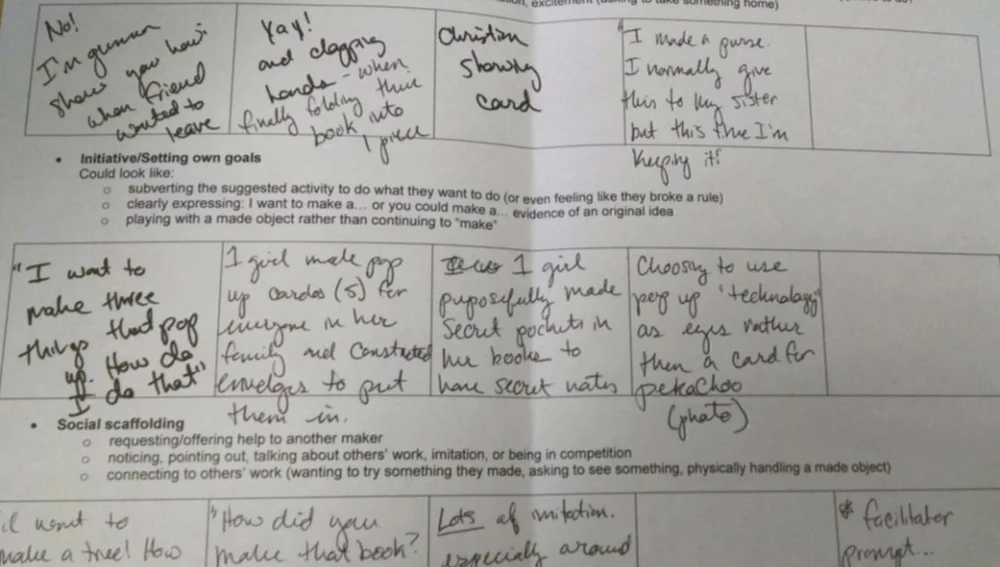 excitement (asking to take something home)
No!
I'm gunna
show you how"
when friend
wanted to
leave
Yay!
and clapping
hands - when
finally folding their
book into
1 piece
Christian
showing
card
"I made a purse.
I normally give
this to my sister
but this time I'm
keeping it!
• Initiative/Setting own goals
Could look like:
o subverting the suggested activity to do what they want to do (or even feeling like they broke a rule)
o clearly expressing: I want to make a... or you could make a... evidence of an original idea
o playing with a made object rather than continuing to "make"
"I want to
make three
things that pop
up. How do
I do that"
1 girl made pop
up cardos (5) for
everyone in her
family and constructed
envelopes to put
them in.
1 girl
puposefully made
secret pockets in
her booke to
have secret notes
Choosing to use
pop up "technology"
as eyes rather
then a card for
pekachoo
(photo)
• Social scaffolding
o requesting/offering help to another maker
o noticing, pointing out, talking about others' work, imitation, or being in competition
o connecting to others' work (wanting to try something they made, asking to see something, physically handling a made object)
I want to
make a tree! How
"How did you
make that book?
Lots of imitation.
especially around
* facilitator
prompt...